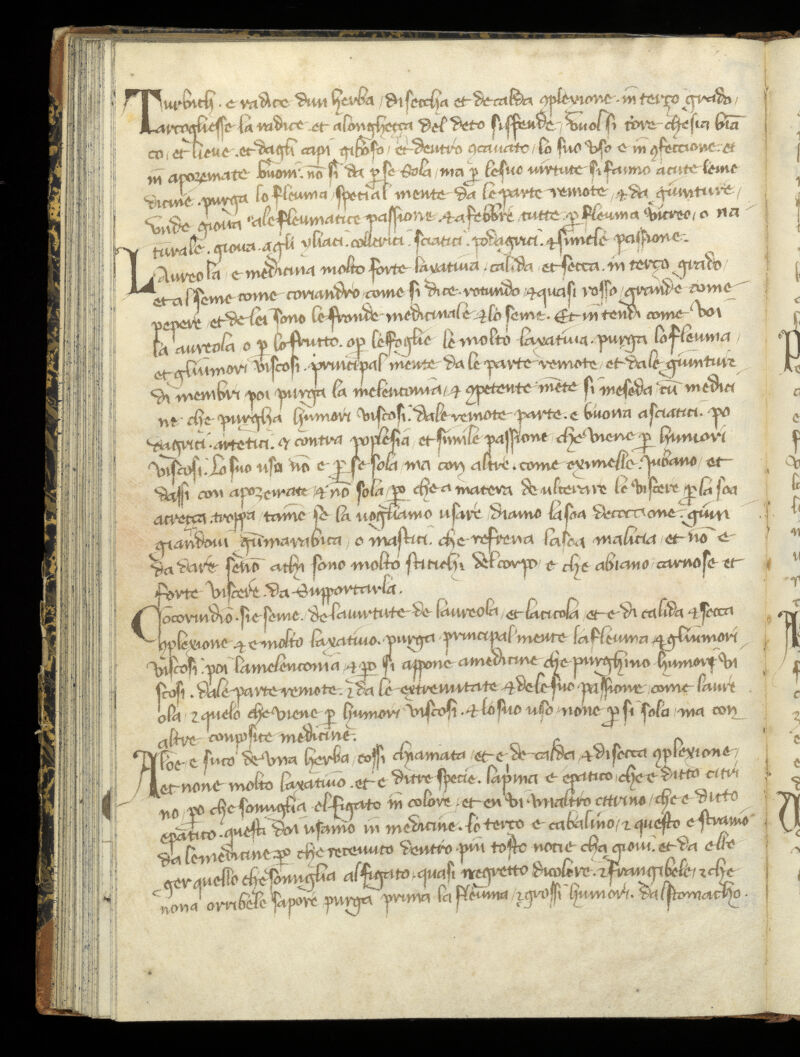 Turbich · e radice dun herba / di seccha et de calda 9plexione · in terço grado /
arcogliesse la radice et a longheçça del deto si ffende / vuol si tore che sia biā
co / et lieue · et dagli capi giboso / et dentro 9cauato / lo suo uso e in 9fectione · et
in apozemate buoni · nō si da p se sola / ma p le suo uirtute si fanno acute le me
dicine · purga lo fleuma / spetial mente da le parte remote / & da giunture /
unde gioua ale fleumatice passione · & a febbre tutte p fleuma vitreo / o na
turale · gioua agli yliaci · collerici · sciatici · podagrici · & simele passione ·
LAureola / e medicina molto forte laxatiua · calida et secca · in terço grado /
et al seme come coriandro / come si dice · rotundo / & quasi rosso / grande come
pepere / et de lei sono le fronde medicinale & lo seme · Et in tendi come voi
la aureola o p lo frutto · o p le foglie le molto laxatiua · purga lo fleuma /
et gliumori viscosi · principal mente da le parte remote / et da le giunture
di membri poi purga la melenconia / & 9petente mēte si meseda cū medici
ne che purgha humori viscosi · da le remote parte · e buona a sciatici · po
dagrici · artetici · & contra poplesia et simile passione che viene p humori
viscosi · Lo suo uso nō e p se sola / ma con altre · come eximelle · Jubano / et
dassi con apozemate / & nō sola / po che a matera de ulcerare le viscere p la soa
acreçça · troppa / tame se la uogliamo usare / diamo la soa decoccione · giun
giandoui gūmarabica / o mastici · che refrena la soa malicia / et nō e
da dare senō a chi sono molto stitichi del corpo / e che abiano carnose et
forte viscere · da supportarla ·
Cocorindio · si e seme · de la uirtute de laureola / et la cicola et e di calida & secca
9plexione & e molto laxatiuo · purga principal mente la fleuma & gliumori
viscosi · poi la melenconia / & po si appone a medicine che purghino humori vi
scosi · da le parte remote · & da le extremitate & de le suo passione / come laure
ola / & quelo che viene p humori viscosi · & lo suo uso / none p si sola / ma con
altre composite medicine ·
Aloe e suco de vna herba / cossi chiamata / et e de calda / & di secca 9plexione /
et none molto laxatiuo · et e di tre specie · la pma e epatico / che e ditto citri
no / po che somiglia el figato in colore / et en vi vnaltro citrino / che e ditto
epatico · questi doi usamo in medicine · lo terço e cabalino / & questo e stranio
da le medicine po che receuuto dentro piu tosto noce cha gioui · et da elle
ger quello che somiglia al figato / quasi negretto di colore · & frangibele / & che
nona orribele sapore purga prima la fleuma / & grossi humori · dal stomacho ·